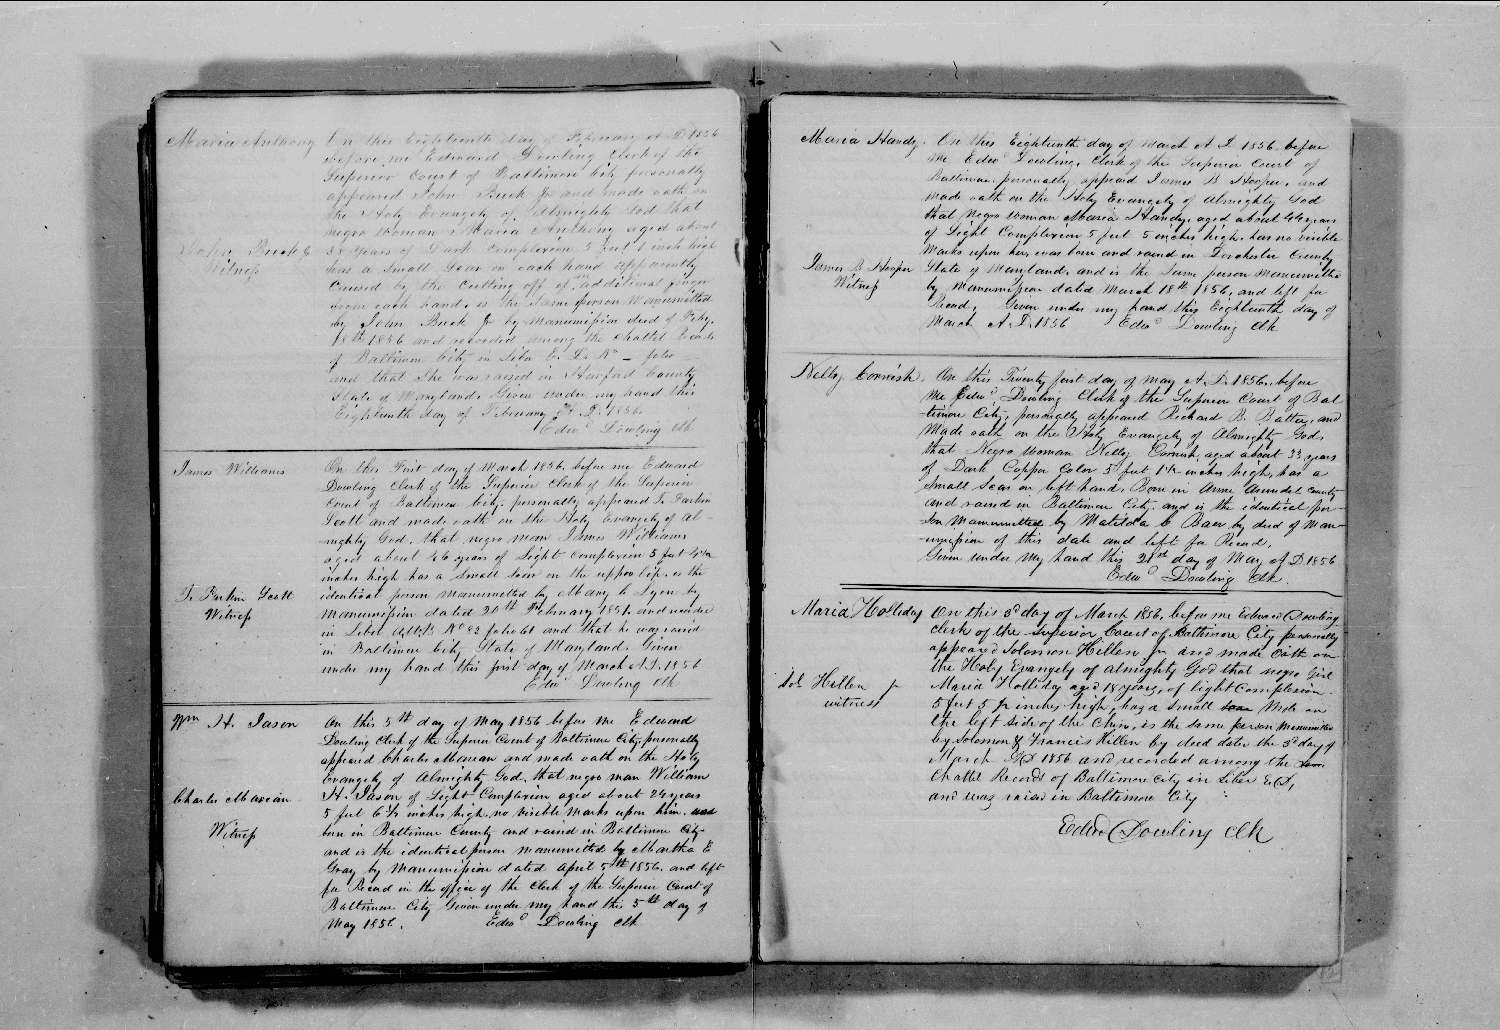 Maria Anthony
On this Eighteenth day of February A D 1856
before me Edward Dowling Clerk of the
Superior Court of Baltimore City personally
appeared John Buck Jr and made oath on
the Holy Evangely of Almighty God that
negro woman Maria Anthony aged about
years of Dark Complexion 5 feet 1 inch high
has a small Scar on each hand apparently
caused by the cutting off of an additional finger
from each hand, is the Same person Manumitted
by John Buck Jr by Manumission deed of Feby.
18th 1856 and recorded among the Chattel Records
of Baltimore City in Liber E. D. No — folio —
and that She was raised in Harford County
State of Maryland. Given under my hand this
Eighteenth day of February A. D. 1856.
Edwd Dowling Clk
John Buck Jr
Witness
James Williams
On this First day of March 1856. before me Edward
Dowling Clerk of the Superior Clerk of the Superior
Court of Baltimore City. personally appeared T. Parkin
Scott and made oath on the Holy Evangely of Al-
mighty God, that negro man James Williams
aged about 26 years of Light Complexion 5 feet 4½
inches high has a small Scar on the upper lip. is the
identical person manumitted by Mary C Lyon by
Manumission dated 20th February 1851. and recorded
in Liber No 93 folio 61 and that he was raised
in Baltimore City State of Maryland. Given
under my hand this first day of March A.D. 1856
Edwd Dowling Clk
T. Parkin Scott
Witness
Wm H. Jason
On this 5th day of May 1856 before me Edward
Dowling Clerk of the Superior Court of Baltimore City, personally
appeared Charles Marian and made oath on the Holy
Evangely of Almighty God, that negro man William
H. Jason of Light Complexion aged about 24 years
5 feet 6½ inches high, no visible marks upon him. was
born in Baltimore County and raised in Baltimore City
and is the identical person manumitted by Martha E
Gray by Manumission dated April 5th 1856. and left
for Record in the office of the Clerk of the Superior Court of
Baltimore City Given under my hand this 5th day of
May 1856. Edwd Dowling Clk
Charles Marian
Witness
Maria Handy.
On this Eighteenth day of March A. D. 1856. before
me Edwd Dowling, Clerk of the Superior Court of
Baltimore. personally appeard James B Hooper. and
made oath on the Holy Evangely of Almighty God
that negro woman Maria Handy. aged about 44 years
of Light Complexion 5 feet 5 inches high. has no visible
Marks upon her, was born and raised in Dorchester County
State of Maryland. and is the Same person manumitted
by Manumission dated March 18th 1856, and left for
Record, Given under my hand this Eighteenth day of
March A. D. 1856 Edwd Dowling Clk
James B Hooper
Witness
Nelly Cornish.
On this Twenty first day of May A. D. 1856. before
me Edwd Dowling Clerk of the Superior Court of Bal
timore City, personally appeared Richard B. Battey. and
Made oath on the Holy Evangely of Almighty God,
that Negro Woman Nelly Cornish. aged about 33 years
of Dark Copper Color 5 feet 1½ inches high, has a
Small Scar on left hand. Born in Anne Arundel County
and raised in Baltimore City. and is the identical per-
son Manumitted by Matilda C Baer by deed of Man-
umission of this date and left for Record.
Given under My hand this 21st day of May A D 1856
Edwd Dowling Clk.
Maria Holliday
On this 3d day of March 1856. before me Edward Dowling
Clerk of the Superior Court of Baltimore City personally
appeared Solomon Hillen Jr and made Oath on
the Holy Evangely of Almighty God that negro Girl
Maria Holliday aged 18 years, of light Complexion.
5 feet 5¼ inches high, has a small scar Mole on
the left side of the Chin, is the same person Manumitted
by Solomon & Francis Hillen by deed dated the 3d day of
March A D 1856 and recorded among the
Chattel Records of Baltimore City in Liber E. D,
and was raised in Baltimore City
Edwd Dowling Clk
Sol Hillen Jr
witness